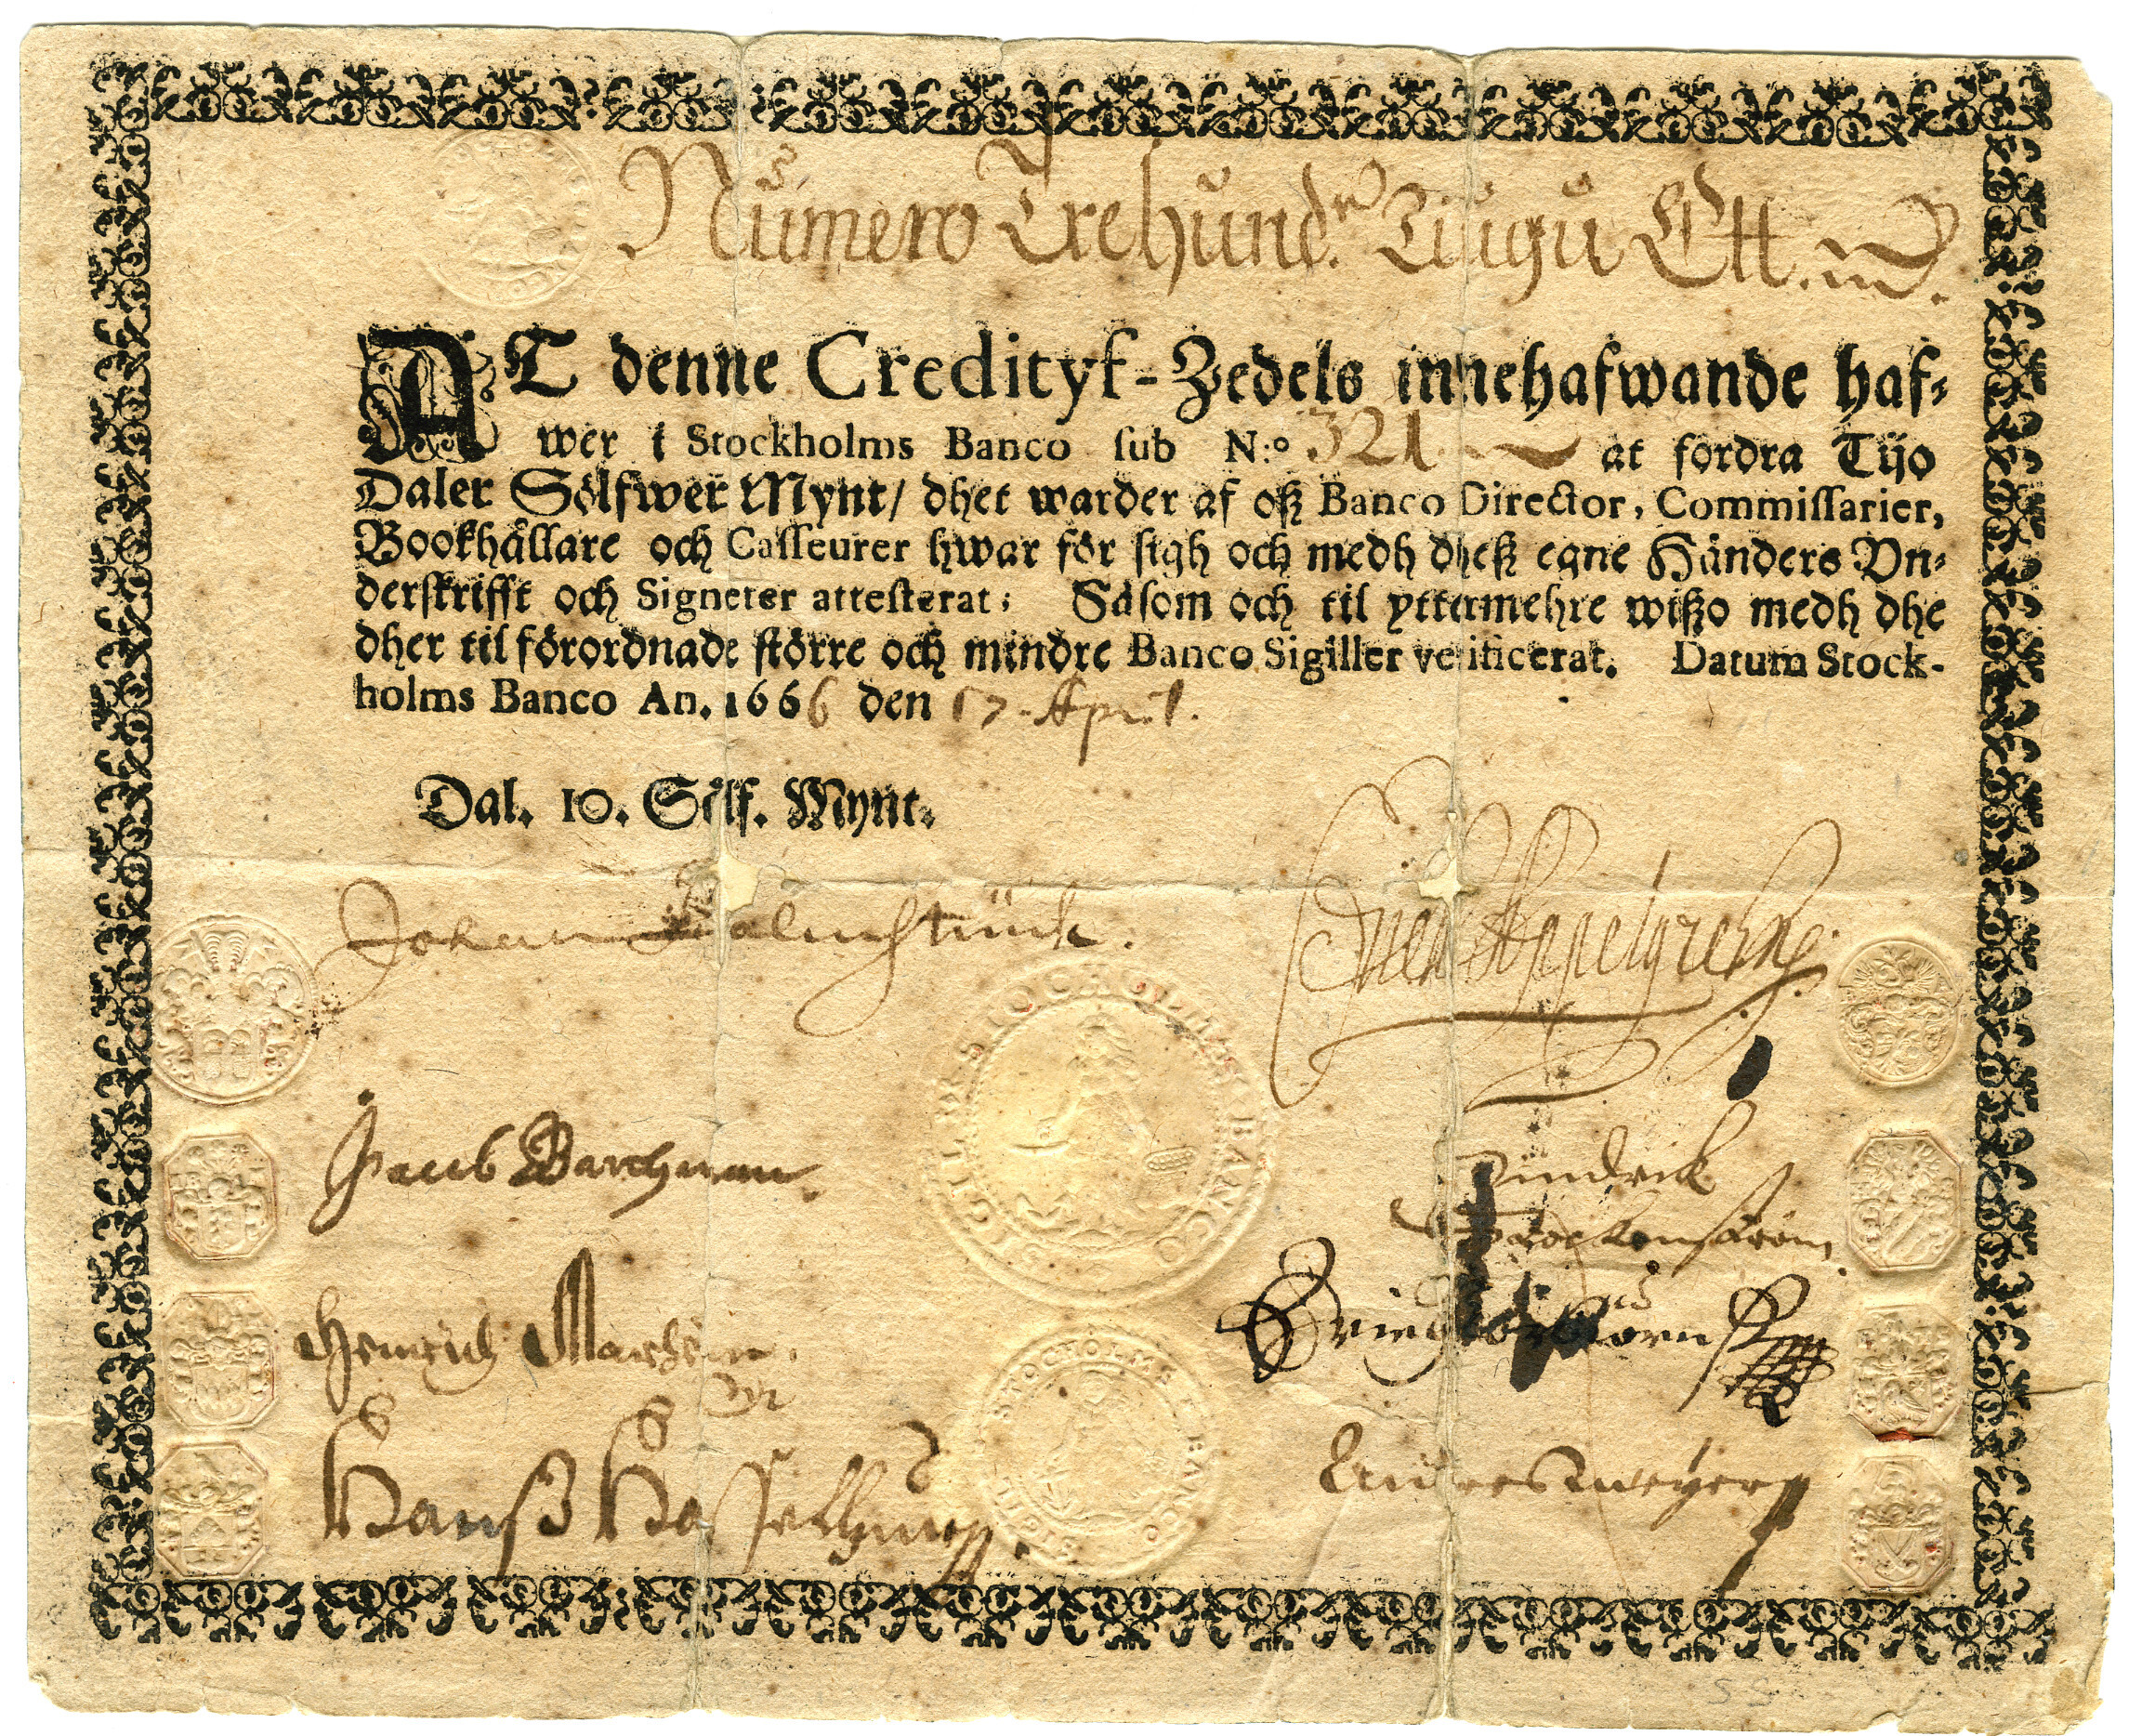 Numero Trehund. Tiugu Ett.
AT denne Credityf-Zedels innehafwande haf-
wer i Stockholms Banco sub N:o 321 at fordra Tijo
Daler Sölfwer Mynt/ dhet warder af oß Banco Director, Commissarier,
Bookhållare och Casseurer hwar för sigh och medh dheß egne Händers Vn-
derskrifft och Signeter attesterat; Såsom och til yttermehre wißo medh dhe
dher til förordnade större och mindre Banco Sigiller verificerat. Datum Stock-
holms Banco An. 1666 den 17. April.
Dal. 10. Sölf. Mynt.
Johan Palmstruck.
Jacob Barchman.
Hindrick
Heinrich
Hanß
SIGILL STOCHOLMS BANCO